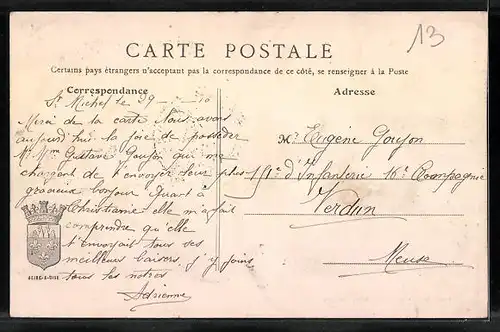 13
CARTE POSTALE
Certains pays étrangers n'acceptant pas la correspondance de ce côté, se renseigner à la Poste
Correspondance
Adresse
St Michel le 29 - - 10
Merci de la carte Nous avons
aujourd'hui la joie de posséder
Mr Mme Gustave Goujon qui me
chargent de t'envoyer leur plus
gracieux bonjour Quant à
Christiane elle m'a fait
comprendre qu'elle
t'envoyait tous ses
meilleurs baisers j'y joins
tous les notres
Adrienne
Mr Eugène Goujon
151e d'Infanterie 16e Compagnie
Verdun
Meuse